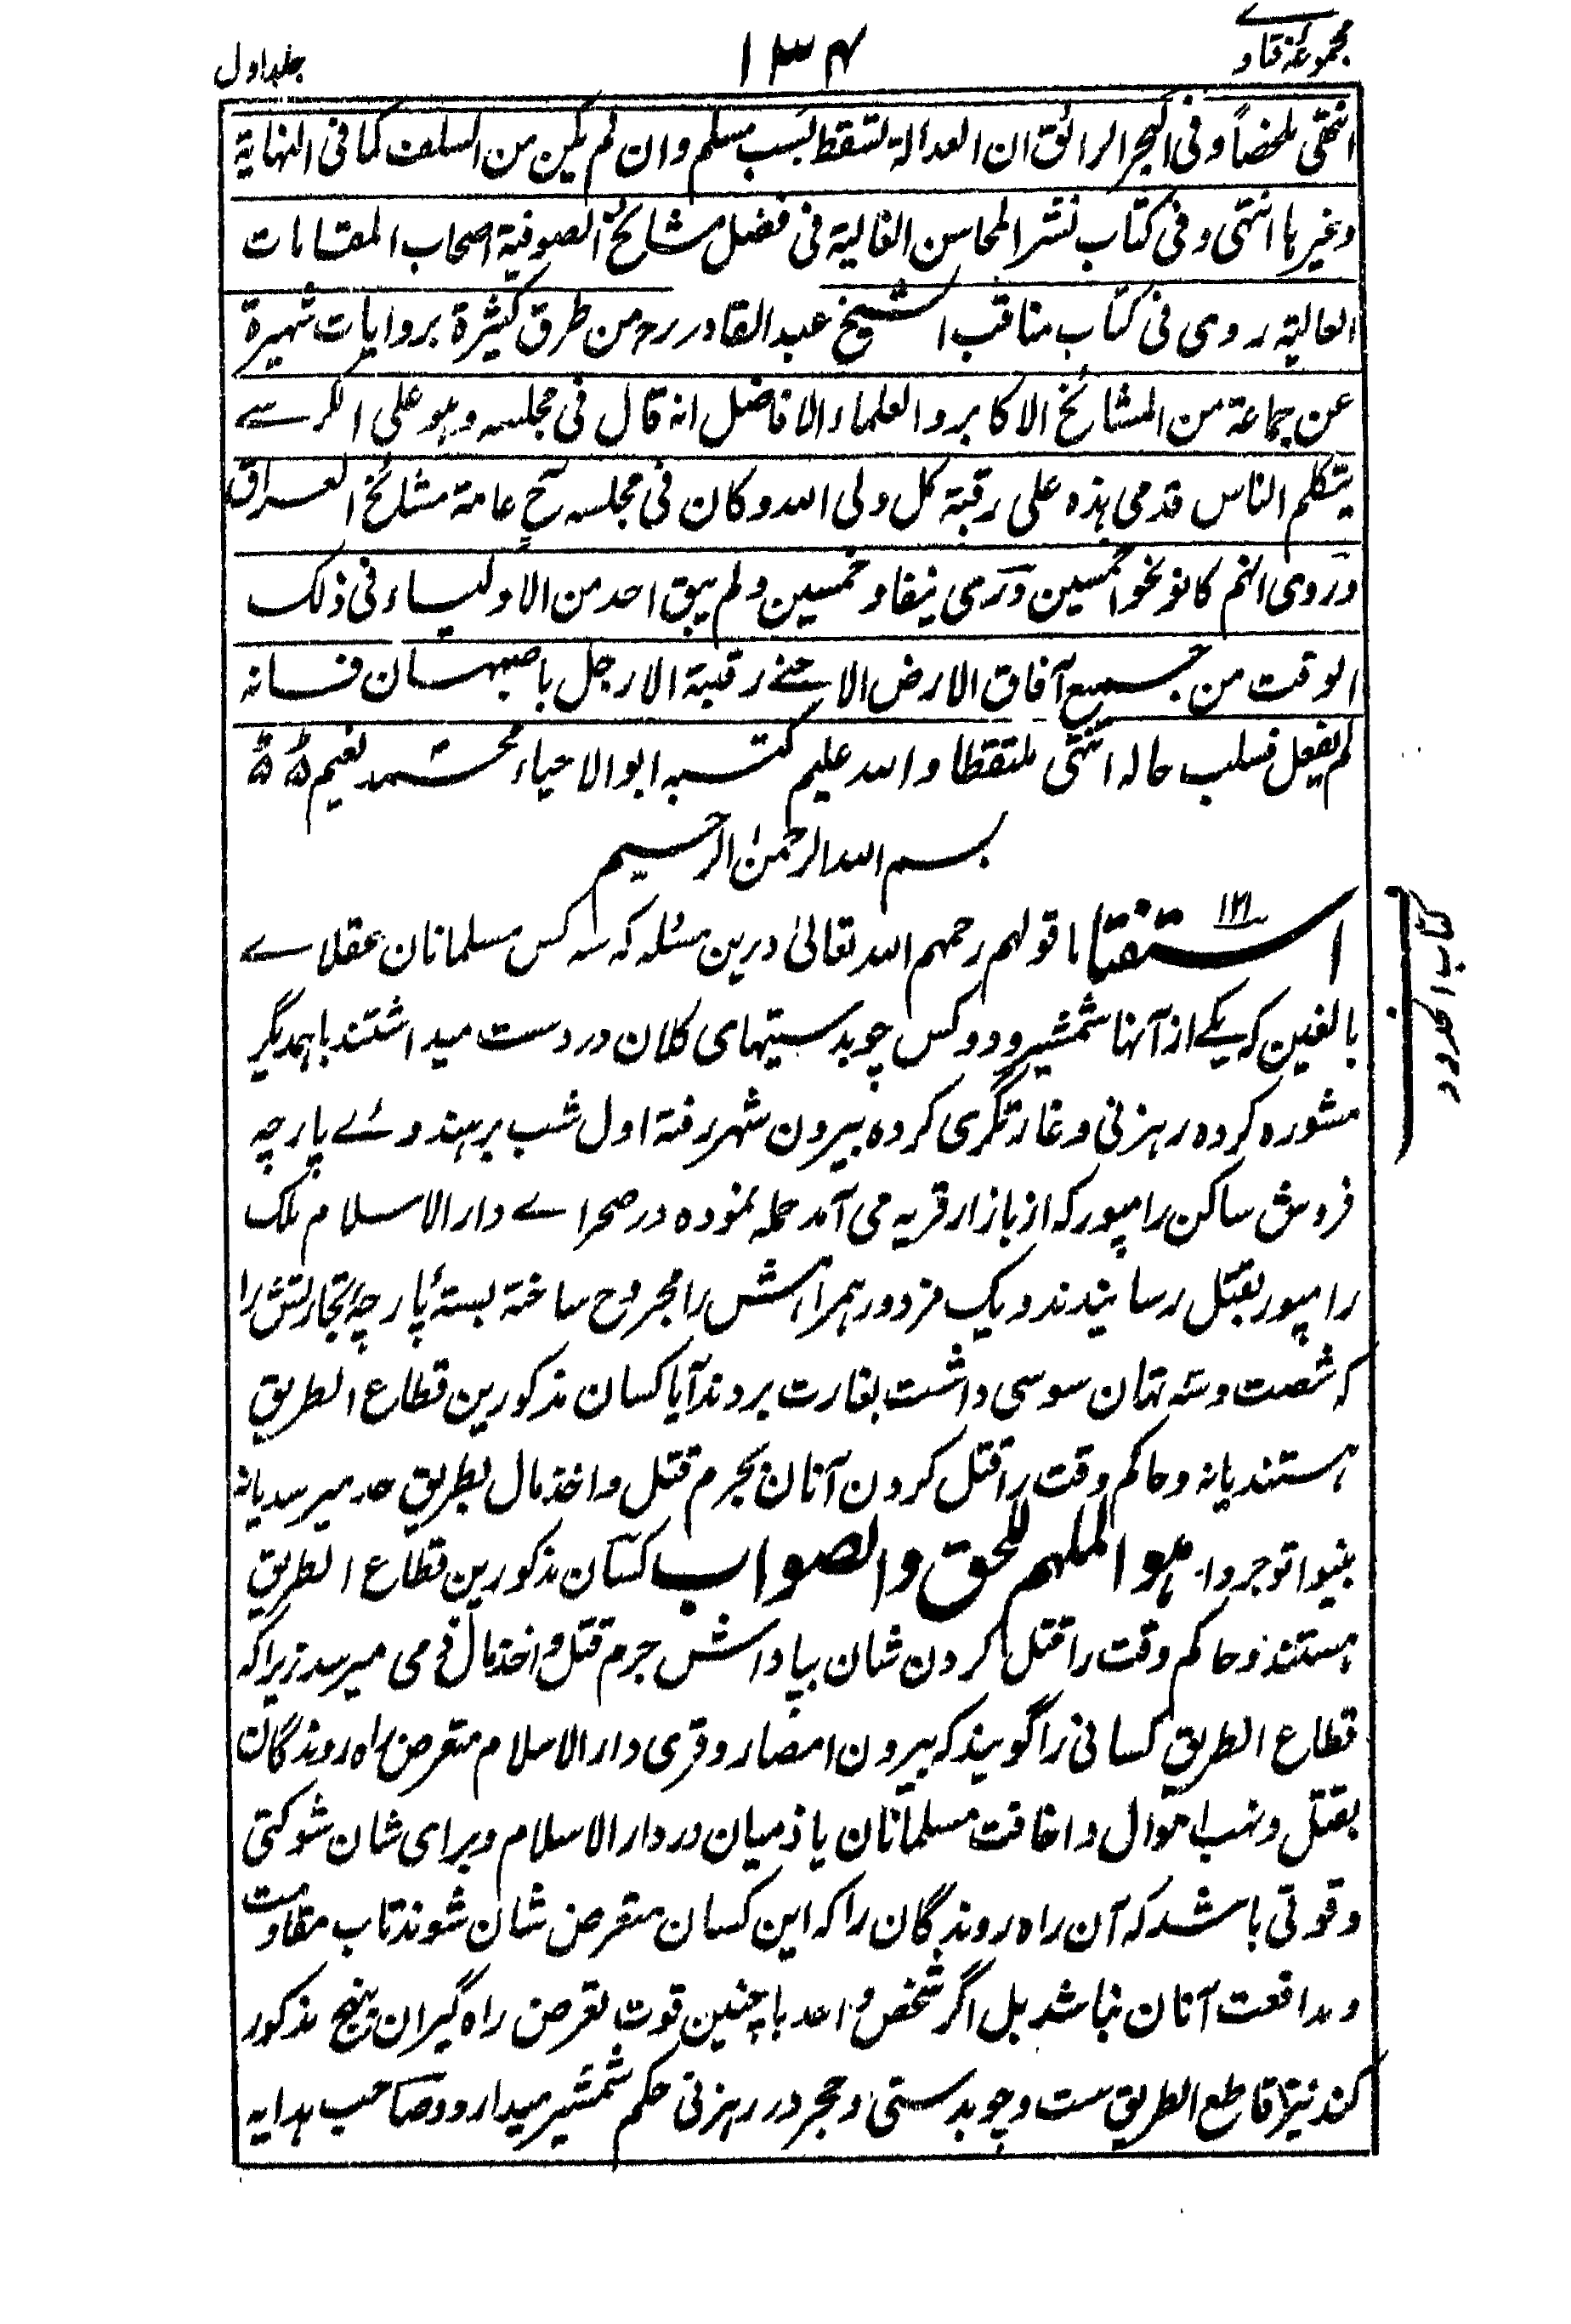 مجموعۂ فتاوے
۱۳۴
جلد اول
انتهی ملخصاً وفی البحر الرائق ان العدالة تسقط بسب مسلم وان لم یکن من السلف کما فی النهایة
وغیرہا انتهی وفی کتاب نشر المحاسن الغالیة فی فضل مشائخ الصوفیة اصحاب المقامات
العالیة روی فی کتاب مناقب الشیخ عبد القادر رح من طرق کثیرة بروایات شهیرة
عن جماعة من المشائخ الاکابر والعلماء الافاضل انه قال فی مجلسه وہو علی الکرسے
یتکلم الناس قدمی ہذہ علی رقبة کل ولی اللہ وکان فی مجلسه ح عامة مشائخ العراق
وروی انهم کانو نحوا خمسین وروی نیفا وخمسین ولم یبق احد من الاولیاء فی ذلک
الوقت من جمیع آفاق الارض الا حنے رقبة الا رجل باصبهان فانه
لم یفعل فسلب حاله انتهی ملتقطا واللہ علیم کتبه ابو الاحیاء محمد نعیم
بسم اللہ الرحمن الرحیم
استفتا ۱۲۱ ما قولهم رحمهم اللہ تعالی درین مسئلہ کہ سہ کس مسلمانان عقلاے
کتاب الحدود
بالغین کہ یکے از آنها شمشیر و دو کس چوبدستیهای کلان در دست میداشتند باہمدیگر
مشورہ کردہ رہزنی و غارتگری کردہ بیرون شہر رفتہ اول شب بر ہندوئے پارچہ
فروش ساکن رامپور کہ از بازار قریہ می آمد حملہ نمودہ در صحراے دار الاسلام ملک
رامپور بقتل رسانیدند و یک مزدور ہمراہش را مجروح ساختہ بستۂ پارچۂ تجارتش را
کہ شصت و سہ تهان سوسی داشت بغارت بردند آیا کسان مذکورین قطاع الطریق
ہستند یا نہ و حاکم وقت را قتل کردن آنان بجرم قتل و اخذ مال بطریق حد میرسد یا نہ
بینوا توجروا ہو الملهم للحق والصواب کسان مذکورین قطاع الطریق
ہستند و حاکم وقت را قتل کردن شان بپاداش جرم قتل و اخذ مال ذمی میرسد زیراکہ
قطاع الطریق کسانی را گویند کہ بیرون امصار و قری دار الاسلام متعرض راہ روندگان
بقتل و نهب اموال و اخافت مسلمانان یا ذمیان در دار الاسلام و برای شان شوکتی
و قوتی باشد کہ آن راہ روندگان را کہ این کسان متعرض شان شوند تاب مقاومت
و مدافعت آنان نباشد بل اگر شخص واحد با چنین قوت تعرض راہ گیران بنهج مذکور
کند نیز قاطع الطریق ست و چوبدستی و حجر در رہزنی حکم شمشیر میدارد و صاحب ہدایہ